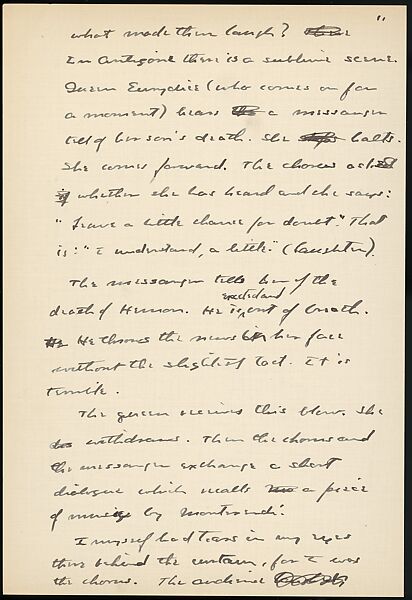 11
what made them laugh?
In Antigone there is a sublime scene.
Queen Eurydice (who comes on for
a moment) hears a messenger
tell of her son's death. She halts.
She comes forward. The chorus asks
whether she has heard and she says:
"Leave a little chance for doubt." That
is: "I understand, a little." (laughter).
The messenger tells her of the
death of Hemon. He is excited and out of breath.
He throws the news in her face
without the slightest tact. It is
terrible.
The queen receives this blow. She
withdraws. Then the chorus and
the messenger exchange a short
dialogue which recalls a piece
of music by Monteverdi.
I myself had tears in my eyes
there behind the curtain, for I was
the chorus. The audience